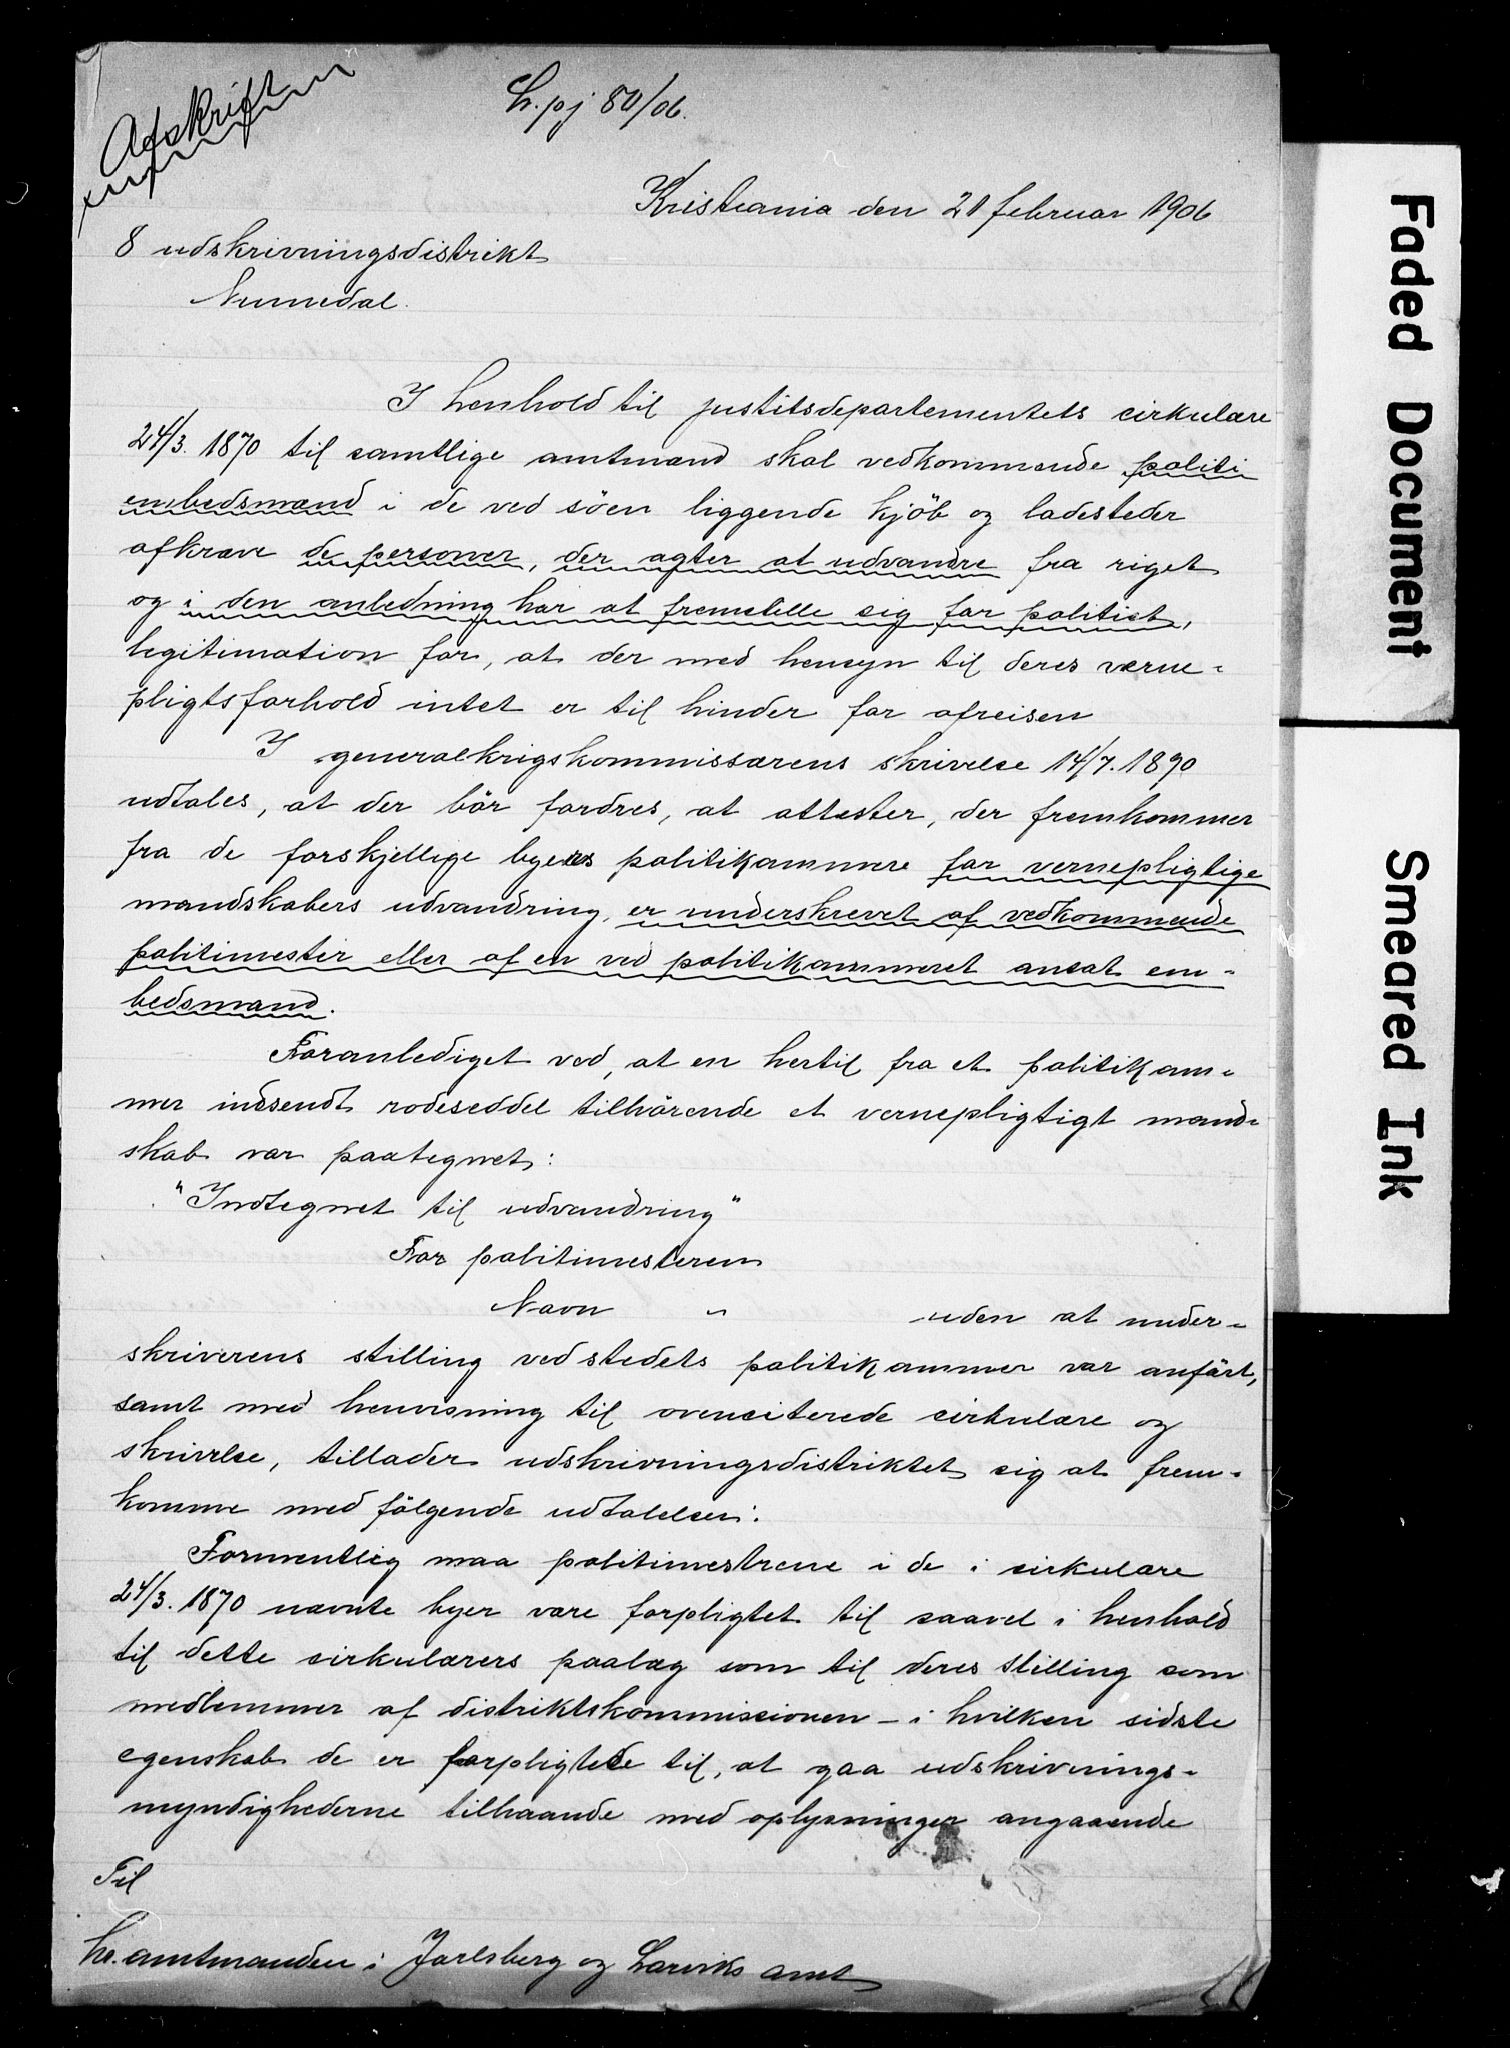 Afskrift
L.pj 80/06.
Kristiania den 21 februar 1906
8 udskrivningsdistrikt
Numedal.
I henhold til justitsdepartementets cirkulære
24/3. 1870 til samtlige amtmænd skal vedkommende politi
embedsmænd i de ved søen liggende kjöb og ladesteder
afkræve de personer, der agter at udvandre fra riget
og i den anledning har at fremstille sig for politiet,
legitimation for, at der med hensyn til deres værne-
pligtsforhold intet er til hinder for afreisen
I generalkrigskommissærens skrivelse 14/7. 1890
udtales, at der bör fordres, at attester, der fremkommer
fra de forskjellige byers politikammere for vernepligtige
mandskabers udvandring, er underskrevet af vedkommende
politimester eller af en ved politikammeret ansat em-
bedsmand.
Foranlediget ved, at en hertil fra et politikam-
mer indsendt rodeseddel tilhörende et vernepligtigt mand-
skab var paategnet:
"Indtegnet til udvandring"
For politimesteren
Navn "
uden at under-
skriverens stilling ved stedets politikammer var anfört,
samt med henvisning til ovenciterede cirkulære og
skrivelse, tillader udskrivningsdistriktet sig at frem-
komme med fölgende udtalelser:
Formentlig maa politimestrene i de i cirkulære
24/3. 1870 nævnte byer være forpligtet til saavel i henhold
til dette cirkulærers paalæg som til deres stilling som
medlemmer af distriktskommissionen - i hvilken sidste
egenskab de er forpligtede til, at gaa udskrivnings-
myndighederne tilhaande med oplysninger angaaende
Til
hr. amtmanden i Jarlsberg og Larviks amt
Faded Document
Smeared Ink